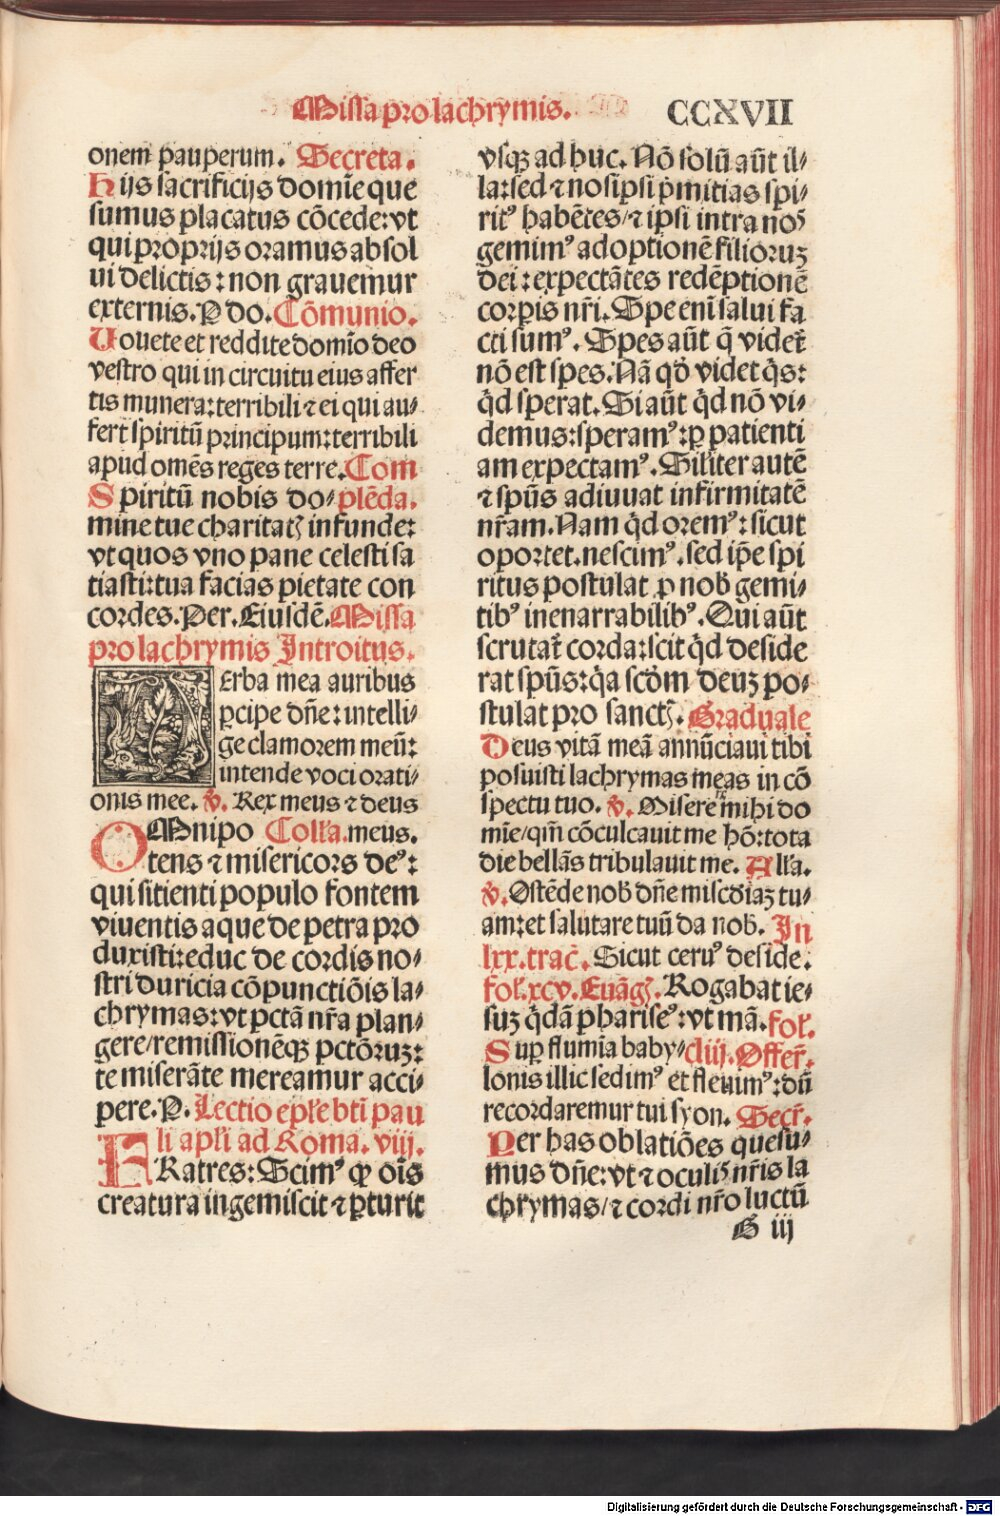 Missa pro lachrymis. CCXVII
onem pauperum. Secreta.
Hijs sacrificijs domīe que
sumus placatus cōcede: vt
qui proprijs oramus absol
ui delictis: non grauemur
externis. P do. Cōmunio.
Uouete et reddite domīo deo
vestro qui in circuitu eius affer
tis munera: terribili ⁊ ei qui au⸗
fert spiritū principum: terribili
apud omēs reges terre. Com
Spiritū nobis do⸗ plēda.
mine tue charitatꝭ infunde:
vt quos vno pane celesti sa
tiasti: tua facias pietate con
cordes. Per. Eiusdē. Missa
pro lachrymis Introitus.
Uerba mea auribus
ꝑcipe dn̄e: intelli⸗
ge clamorem meū:
intende voci orati⸗
onis mee. ℣. Rex meus ⁊ deus
OMnipo Coll'a. meus.
tens ⁊ misericors deꝰ:
qui sitienti populo fontem
viuentis aque de petra pro
duxisti: educ de cordis no⸗
stri duricia cōpunctiōis la⸗
chrymas: vt pctā nr̄a plan⸗
gere/ remissionēqꝫ pctōruꝫ:
te miserāte mereamur acci⸗
pere. P. Lectio epl'e btī pau
li apl'i ad Roma. viij.
FRatres: Scimꝰ ꝙ oīs
creatura ingemiscit ⁊ ꝑturit
vsqꝫ ad huc. Nō solū aūt il⸗
la: sed ⁊ nosip̄si p̄mitias spi⸗
ritꝰ habētes/ ⁊ ipsi intra nos
gemimꝰ adoptionē filioruꝫ
dei: expectātes redēptionē
corꝑis nr̄i. Spe enī salui fa
cti sumꝰ. Spes aūt q̄ videt᷑
nō est spes. Nā qd̓ videt q̇s:
q̇d sperat. Si aūt q̇d nō vi⸗
demus: speramꝰ: ꝑ patienti
am expectamꝰ. Sil'iter autē
⁊ spūs adiuuat infirmitatē
nr̄am. Nam q̇d oremꝰ: sicut
oportet. nescimꝰ. sed ip̄e spi
ritus postulat ꝓ nob̓ gemi⸗
tibꝰ inenarrabilibꝰ. Qui aūt
scrutat᷑ corda: scit q̇d deside
rat spūs: q̇a scd̓m deuꝫ po⸗
stulat pro sanctꝭ. Graduale
Deus vitā meā annūciaui tibi
posuisti lachrymas meas in cō
spectu tuo. ℣. Miserere mihi do
mīe/ qm̄ cōculcauit me hō: tota
die bellās tribulauit me. All'a.
℣. Ostēde nob̓ dn̄e misc̓diaꝫ tu⸗
am: et salutare tuū da nob̓. In
lxx. trac̄. Sicut ceruꝰ deside.
fol'. xcv. Euāgꝭ. Rogabat ie⸗
suꝫ q̇dā phariseꝰ: vt mā. fol'.
Suꝑ flumīa baby⸗ cliij. Offer̄.
lonis illic sedimꝰ et fleuimꝰ: dū
recordaremur tui syon. Secr̄.
Per has oblatiōes quesu⸗
mus dn̄e: vt ⁊ oculis nr̄is la
chrymas/ ⁊ cordi nr̄o luctū
G iij
Digitalisierung gefördert durch die Deutsche Forschungsgemeinschaft - DFG